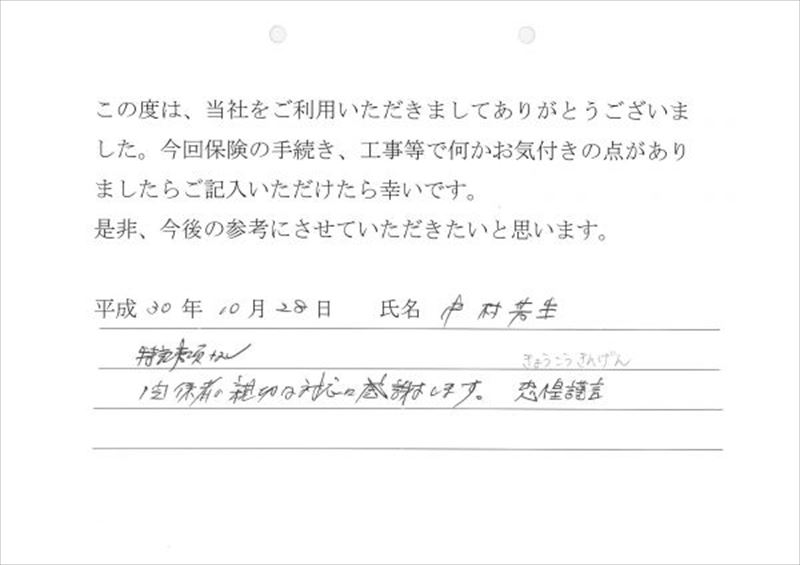 この度は、当社をご利用いただきましてありがとうございま
した。今回保険の手続き、工事等で何かお気付きの点があり
ましたらご記入いただけたら幸いです。
是非、今後の参考にさせていただきたいと思います。
平成 30 年 10 月 28 日 氏名 中村芳生
特記事項なし
きょうこうきんげん
関係者の親切な対応に感謝します。 恐惶謹言